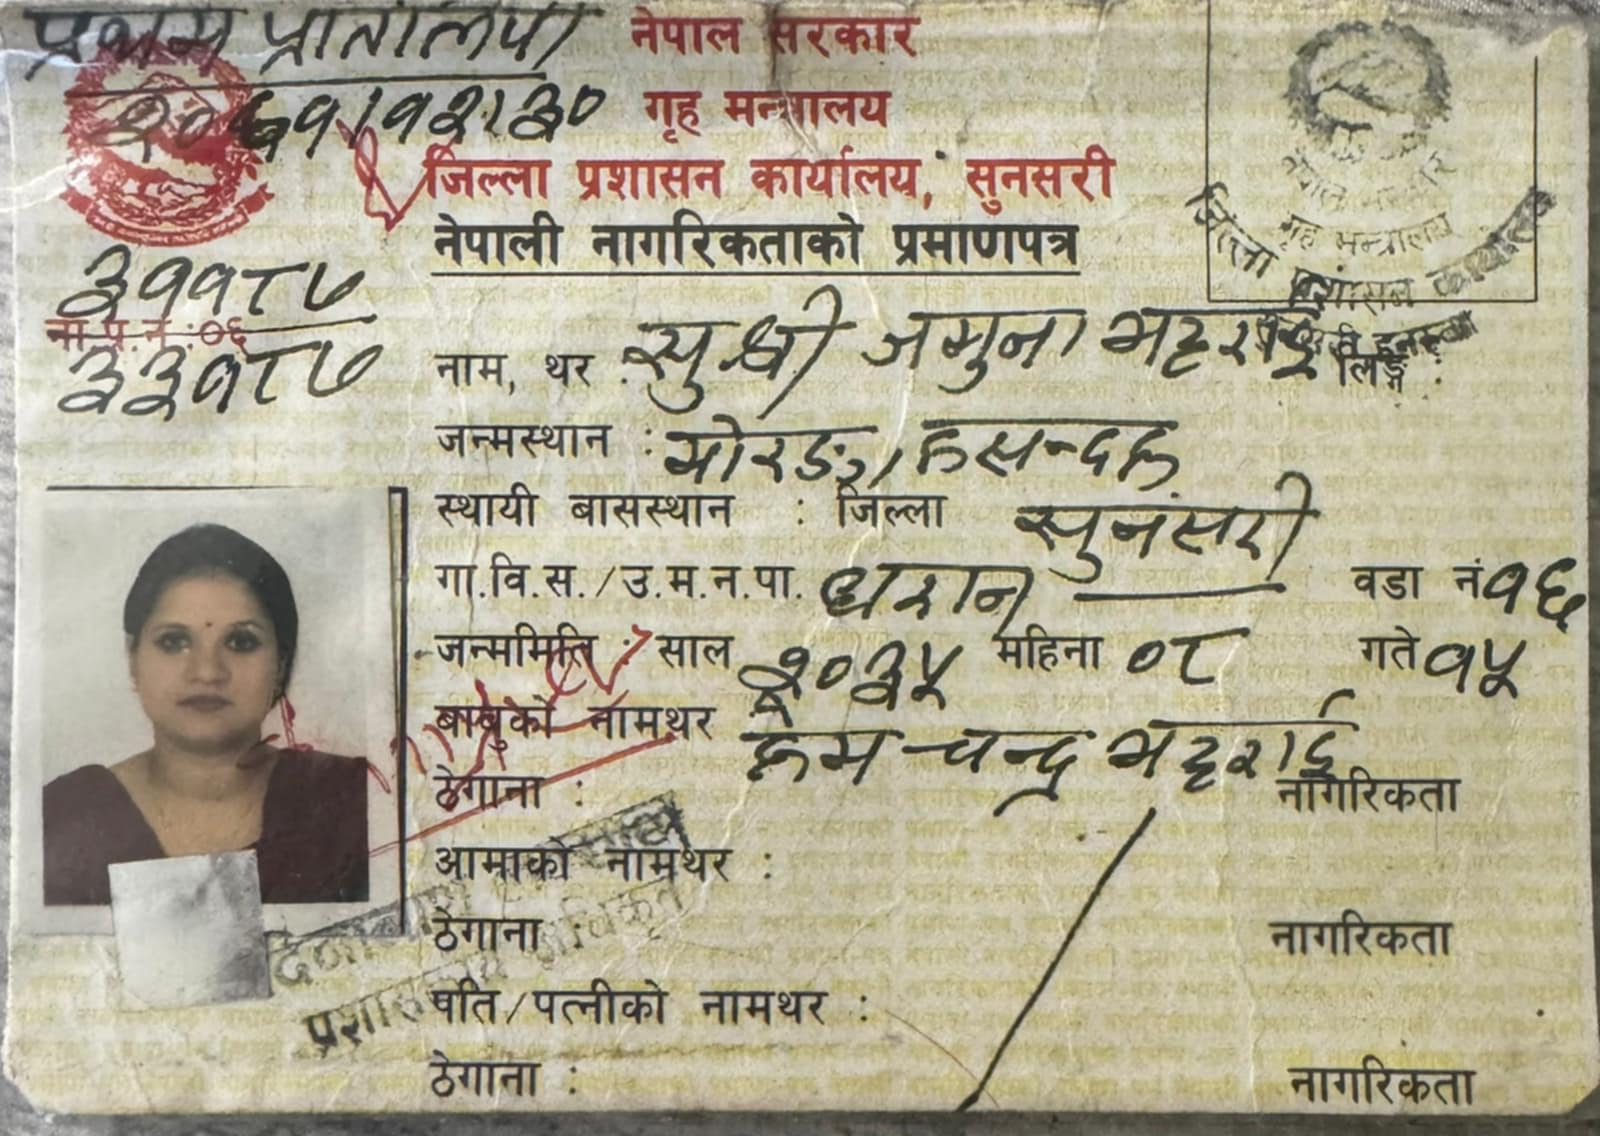 प्रथम प्रतिलिपी
२०६१।१२।३०
नेपाल सरकार
गृह मन्त्रालय
जिल्ला प्रशासन कार्यालय, सुनसरी
नेपाली नागरिकताको प्रमाणपत्र
नेपाल सरकार
गृह मन्त्रालय
जिल्ला प्रशासन कार्यालय
३११८७
ना.प्र.नं.:०६
३३१८७
नाम, थर : सुश्री जमुना भट्टराई लिङ्ग :
जन्मस्थान : मोरङ, हसन्दह
स्थायी बासस्थान : जिल्ला सुनसरी
गा.वि.स./उ.म.न.पा. धरान वडा नं १६
जन्ममिति : साल २०३५ महिना ०८ गते १५
बाबुको नामथर हेमचन्द्र भट्टराई
ठेगाना : नागरिकता
आमाको नामथर :
ठेगाना नागरिकता
पति/पत्नीको नामथर :
ठेगाना : नागरिकता